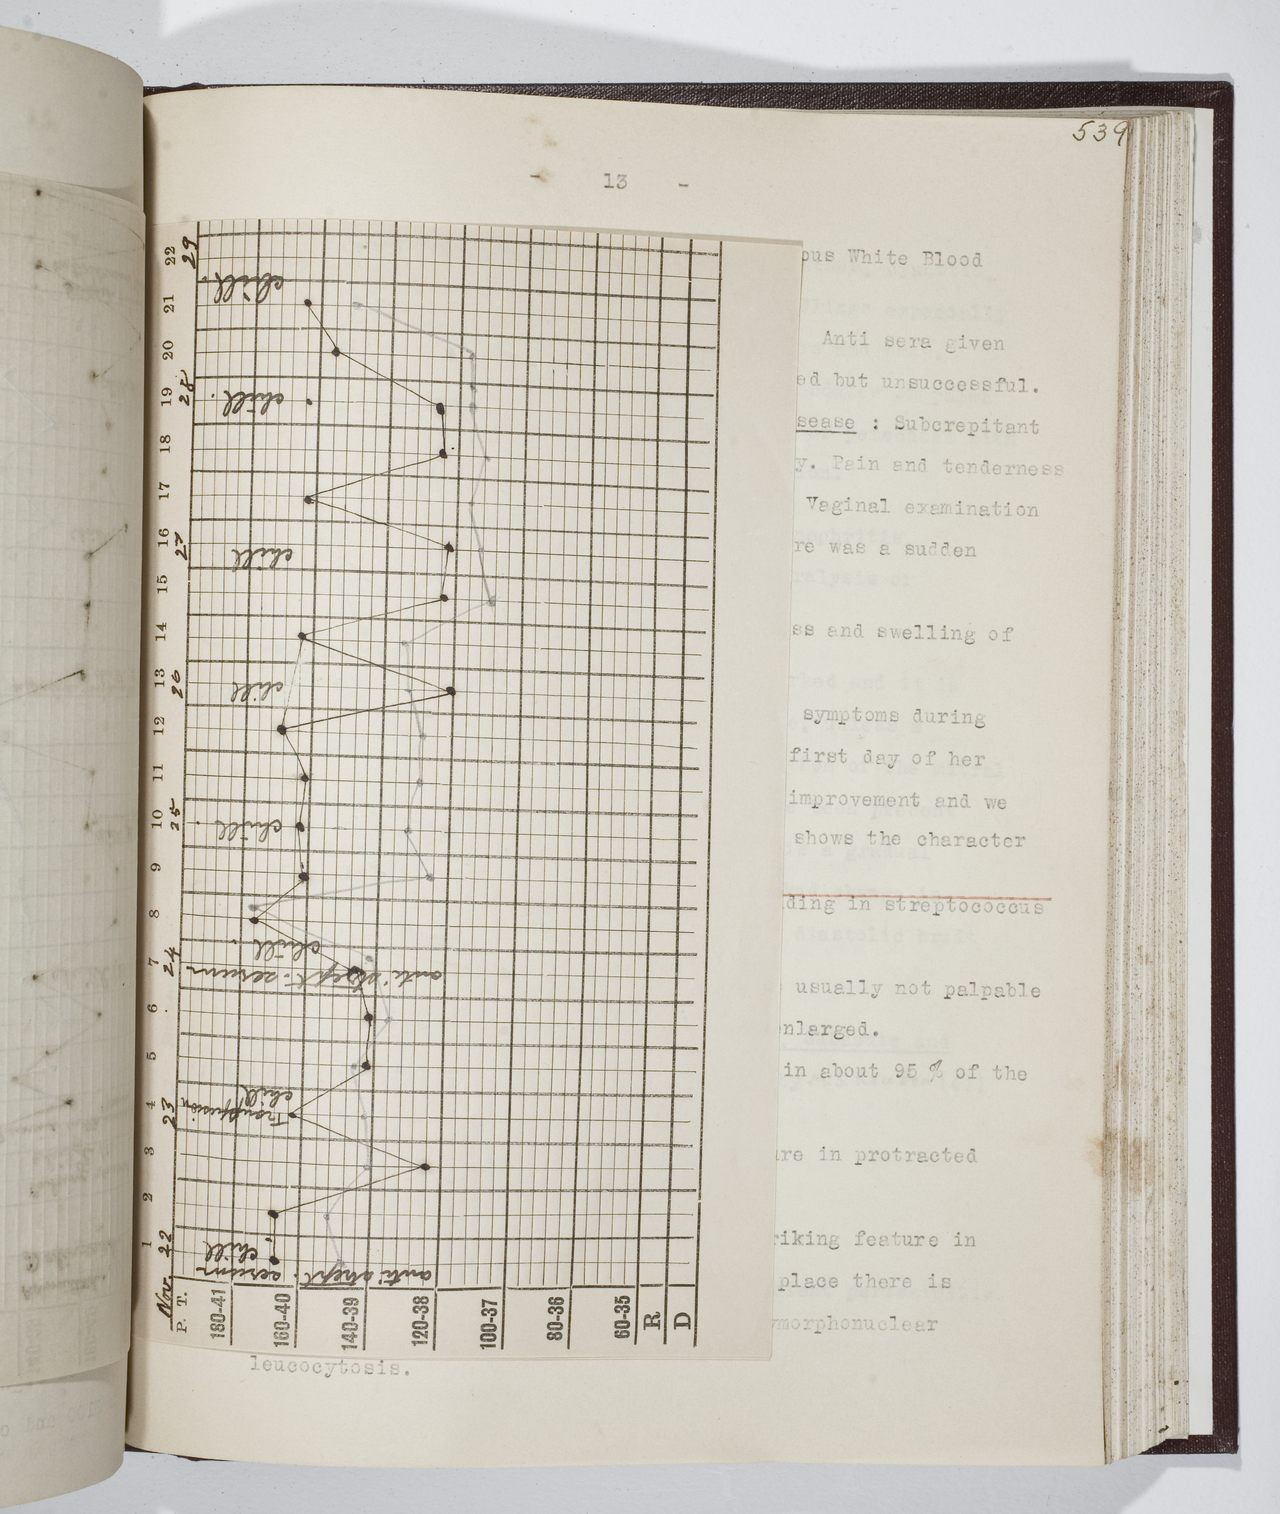 539
- 13 -
ous White Blood
Anti sera given
ed but unsuccessful.
sease : Subcrepitant
y. Pain and tenderness
Vaginal examination
re was a sudden
ss and swelling of
symptoms during
first day of her
improvement and we
shows the character
ding in streptococcus
usually not palpable
enlarged.
in about 95 % of the
are in protracted
riking feature in
place there is
morphonuclear
leucocytosis.
Nov. 22 23 24 25 26 27 28 29
P. T. 1 2 3 4 5 6 7 8 9 10 11 12 13 14 15 16 17 18 19 20 21 22
180-41
160-40
140-39
120-38
100-37
80-36
60-35
R
D
anti strept. serum
chill
Transfusion
chill
anti strept. serum
chill
chill
chill
chill
chill
chill